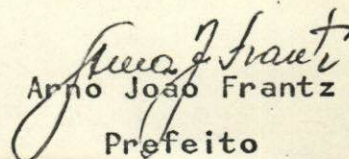 Arno J Frantz
Arno João Frantz
Prefeito